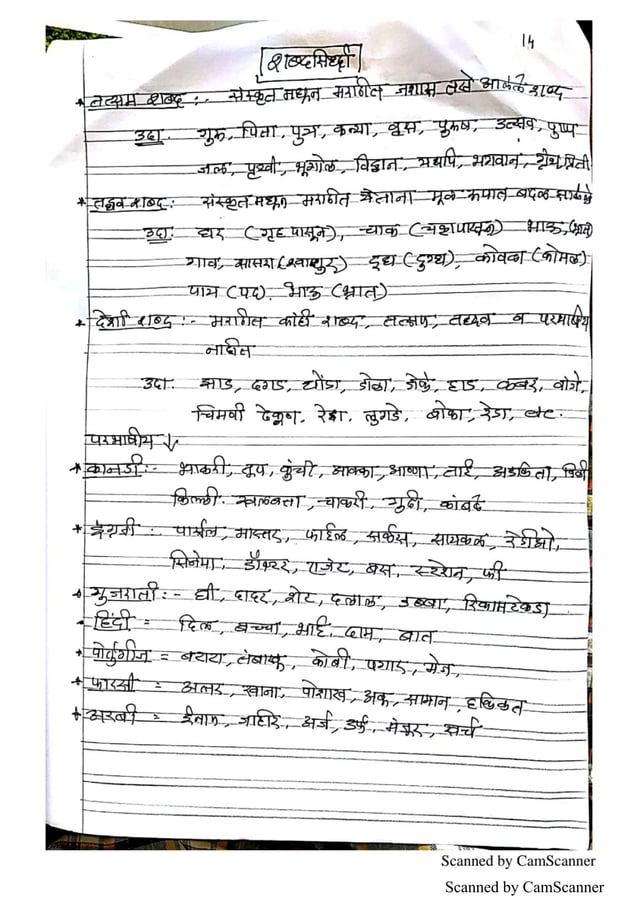 14
शब्दसिध्दी
* तत्सम शब्द :- संस्कृत मधून मराठीत जशास तसे आलेले शब्द
उदा. गुरू, पिता, पुत्र, कन्या, वृक्ष, पुरुष, उत्सव, पुष्प
जल, पृथ्वी, भूगोल, विद्वान, यद्यपि, भगवान, ग्रंथ, प्रिती
* तद्भव शब्द : संस्कृत मधून मराठीत येताना मूळ रूपात बदल
उदा. घर (गृह पासून), चाक (चक्रापासून) भाऊ,
गाव, सासरा (श्वाशुर) दूध (दुग्ध), कोवळा (कोमल)
पाय (पद), भाऊ (भ्रात)
* देशी शब्द :- मराठीत काही शब्द, तत्सम, तद्भव व परभाषीय
नाहीत
उदा. झाड, दगड, धोंडा, डोळा, डोके, हाड, कंबर, वांगे,
चिमणी ढेकूण, रेडा, लुगडे, बोका, रेडा, etc.
परभाषीय ↓
* कानडी :- भाकरी, तूप, कुंची, अक्का, आण्णा, ताई, अडकित्ता,
किल्ली. खलबत्ता, चाकरी, गुढी, कांबळे
* इंग्रजी : पार्सल, मास्तर, फाईल, सर्कस, सायकल, रेडीओ,
सिनेमा, डॉक्टर, एजंट, बस, स्टेशन, फी
* गुजराती :- घी, दादर, शेट, दलाल, डब्बा, रिकामटेकडा
* हिंदी = दिल, बच्चा, भाई, दाम, बात
* पोर्तुगीज = बटाटा, तंबाखू, कोबी, पगार, मेज,
* फारसी = अत्तर, खाना, पोशाख, अब्रू, सामान, हकिकत
* अरबी = ईनाम, जाहिर, अर्ज, उर्फ, मंजूर, खर्च
Scanned by CamScanner
Scanned by CamScanner